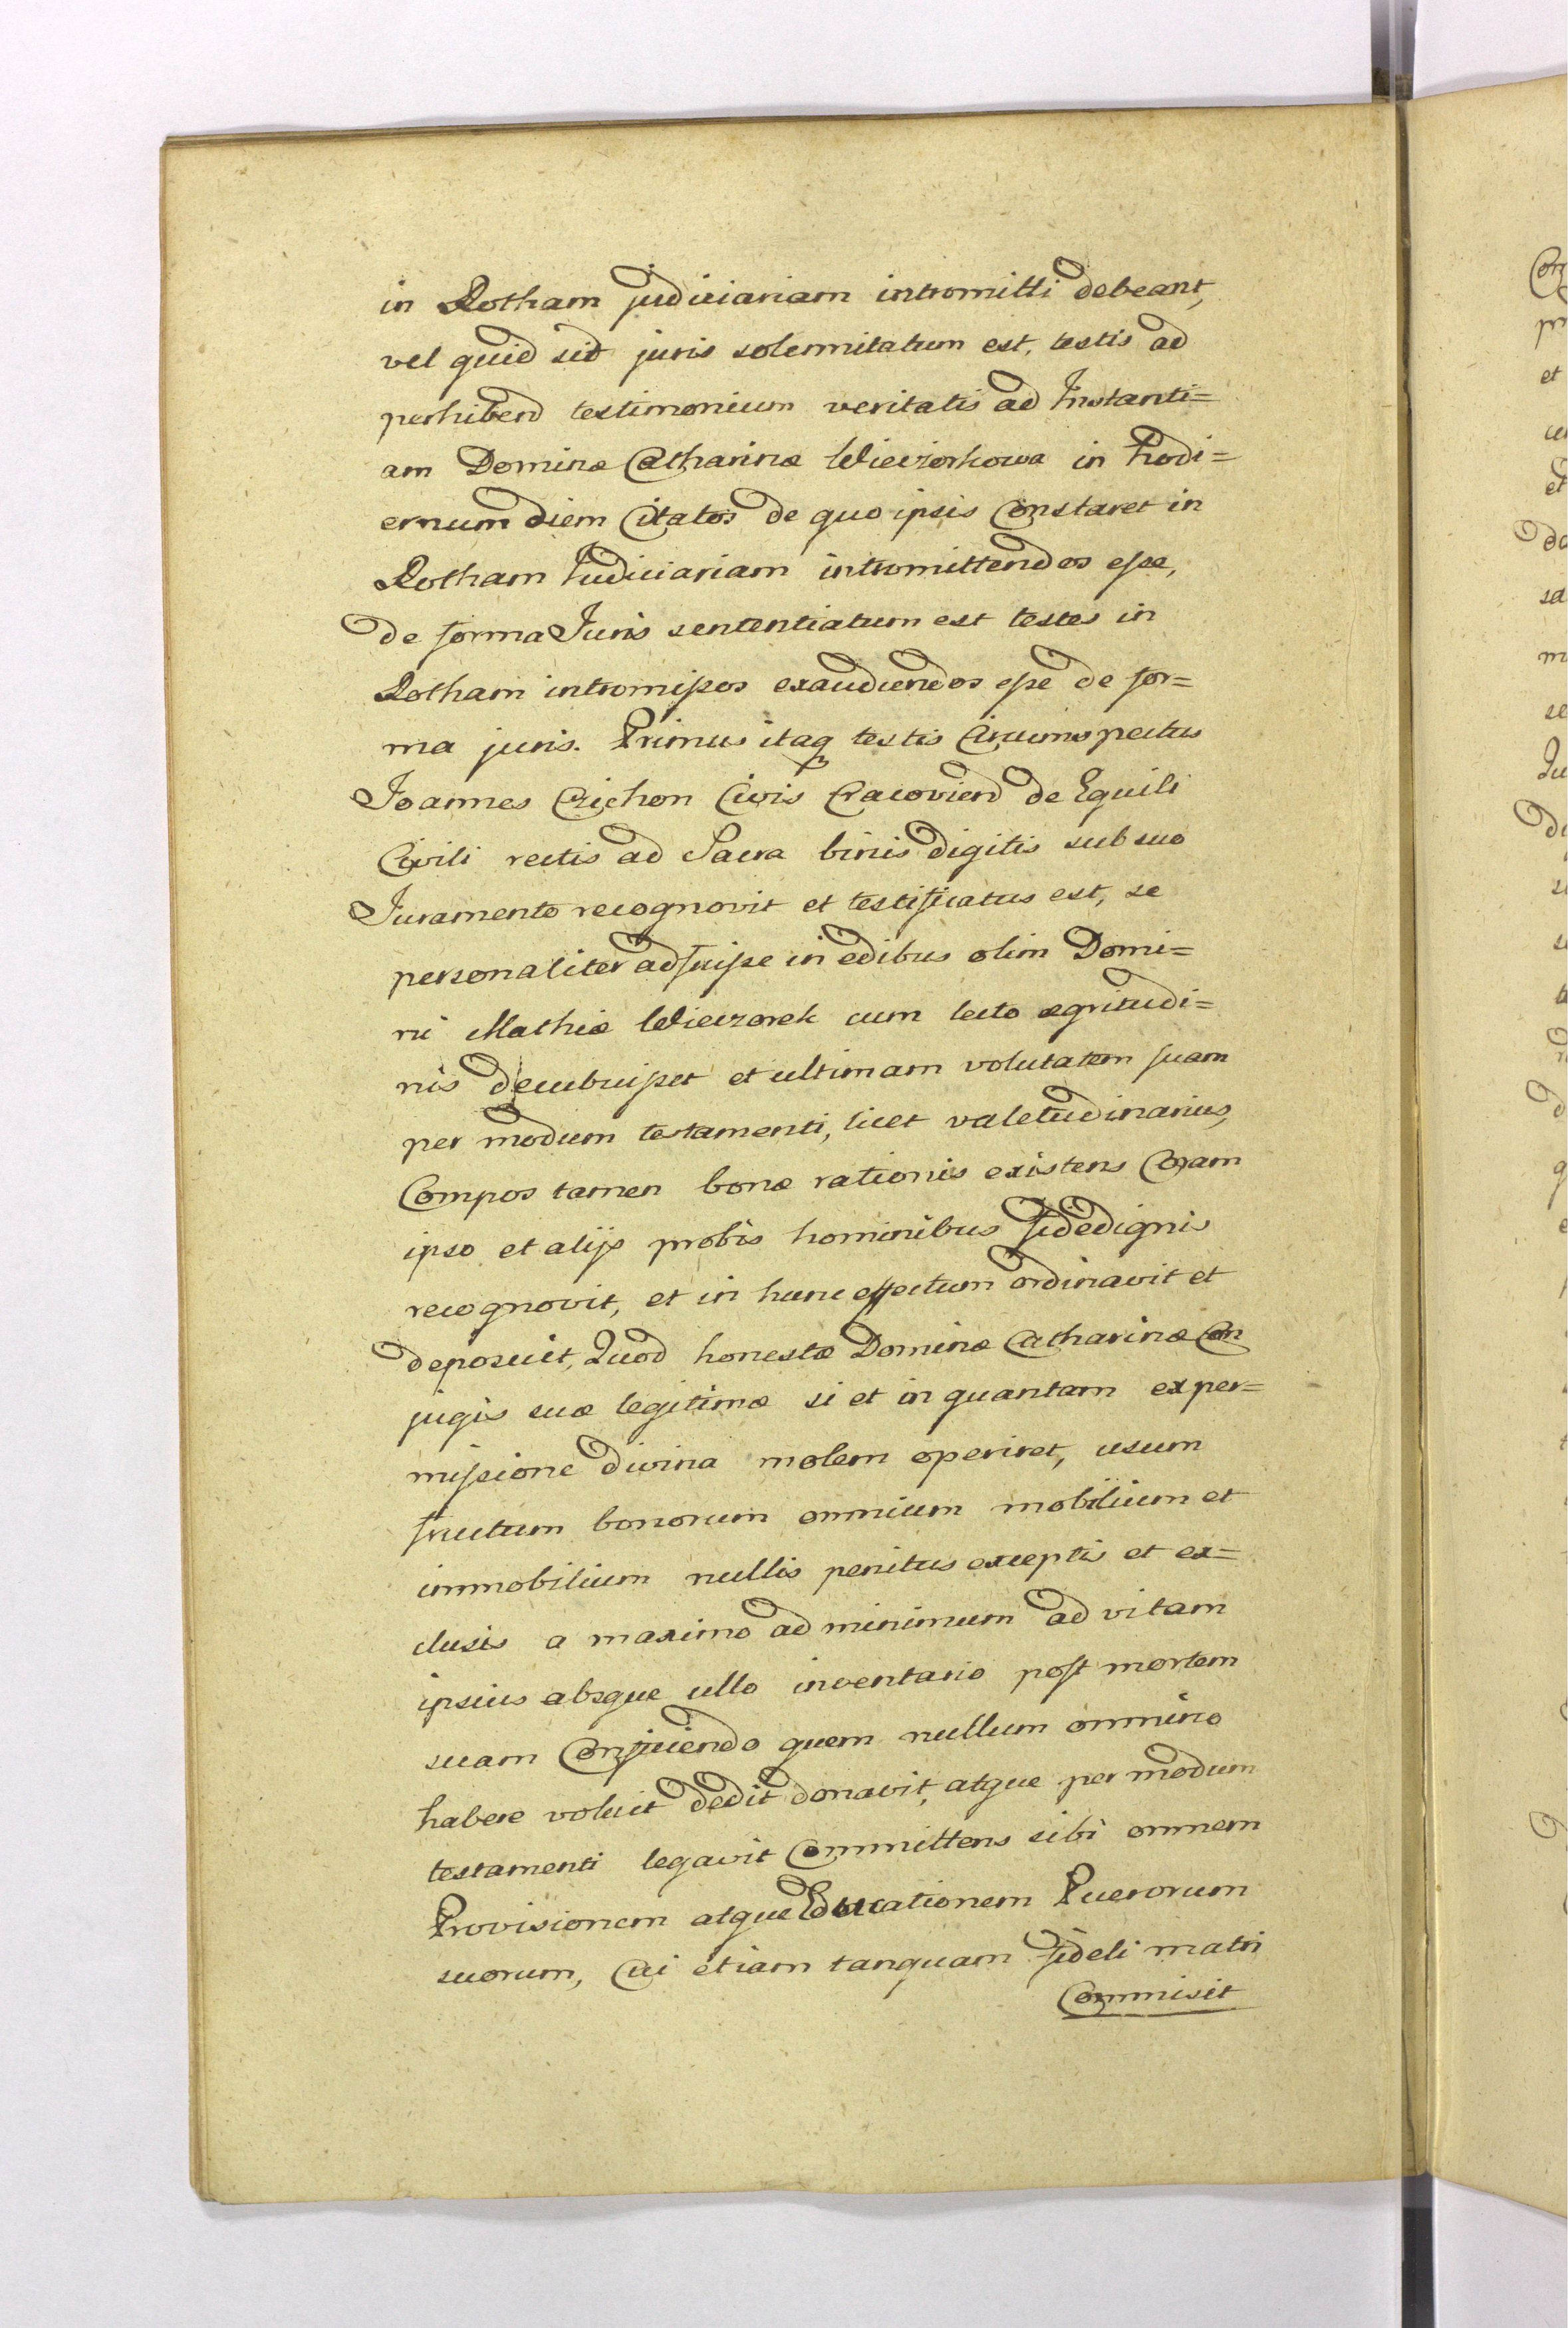 in Rotham judiciariam intromitti debeant,
vel quid sit juris solennitatum est, testis ad
perhibend testimonium veritatis ad Instanti=
am Dominæ Catharinæ Wieczorkowa in hodi=
ernum diem Citatos de quo ipsis Constaret in
Rotham Iudiciariam intromittendos eſse,
de forma Juris sententiatum est testes in
Rotham intromiſsos exaudiendos eſse de for=
ma juris. Primus itaq testis Circumspectus
Joannes Czichon Civis Cracoviend de Equili
Civili rectis ad Sacra binis digitis sub suo
Juramento recognovit et testificatus est, se
personaliter adfuiſse in edibus olim Domi=
ni Mathiæ Wieczorek cum lecto ægritudi=
nis decubuiſset et ultimam volutatem suam
per modum testamenti, licet valetudinarius,
Compos tamen bonæ rationis existens Coram
ipso et alijs probis hominibus fidedignis
recognovit, et in hunc effectum ordinavit et
deposuit, Quod honestæ Dominæ Catharinæ Con
jugis suæ legitimæ si et in quantam ex per=
miſsione divina molem operiret, usum
fructum bonorum omnium mobilium et
immobilium nullis penitus exceptis et ex=
clusis a maximo ad minimum ad vitam
ipsius absque ullo inventario poſt mortem
suam Conficiendo quem nullum omnino
habere voluit dedit donavit, atque per modum
testamenti legavit Committens sibi omnem
Provisionem atque Educationem Puerorum
suorum, Cui etiam tanquam fideli matri
Commisit